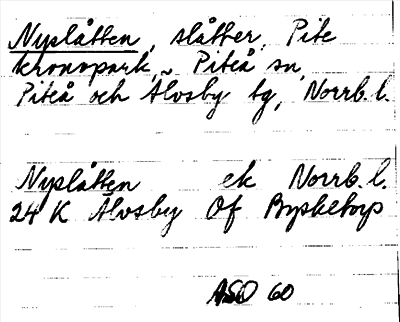 Nyslåtten, slåtter, Pite
kronopark, Piteå sn,
Piteå och Älvsby tg, Norrb. l.
Nyslåtten ek Norrb. l.
24 K Älvsby Of Byskétorp
ASO 60